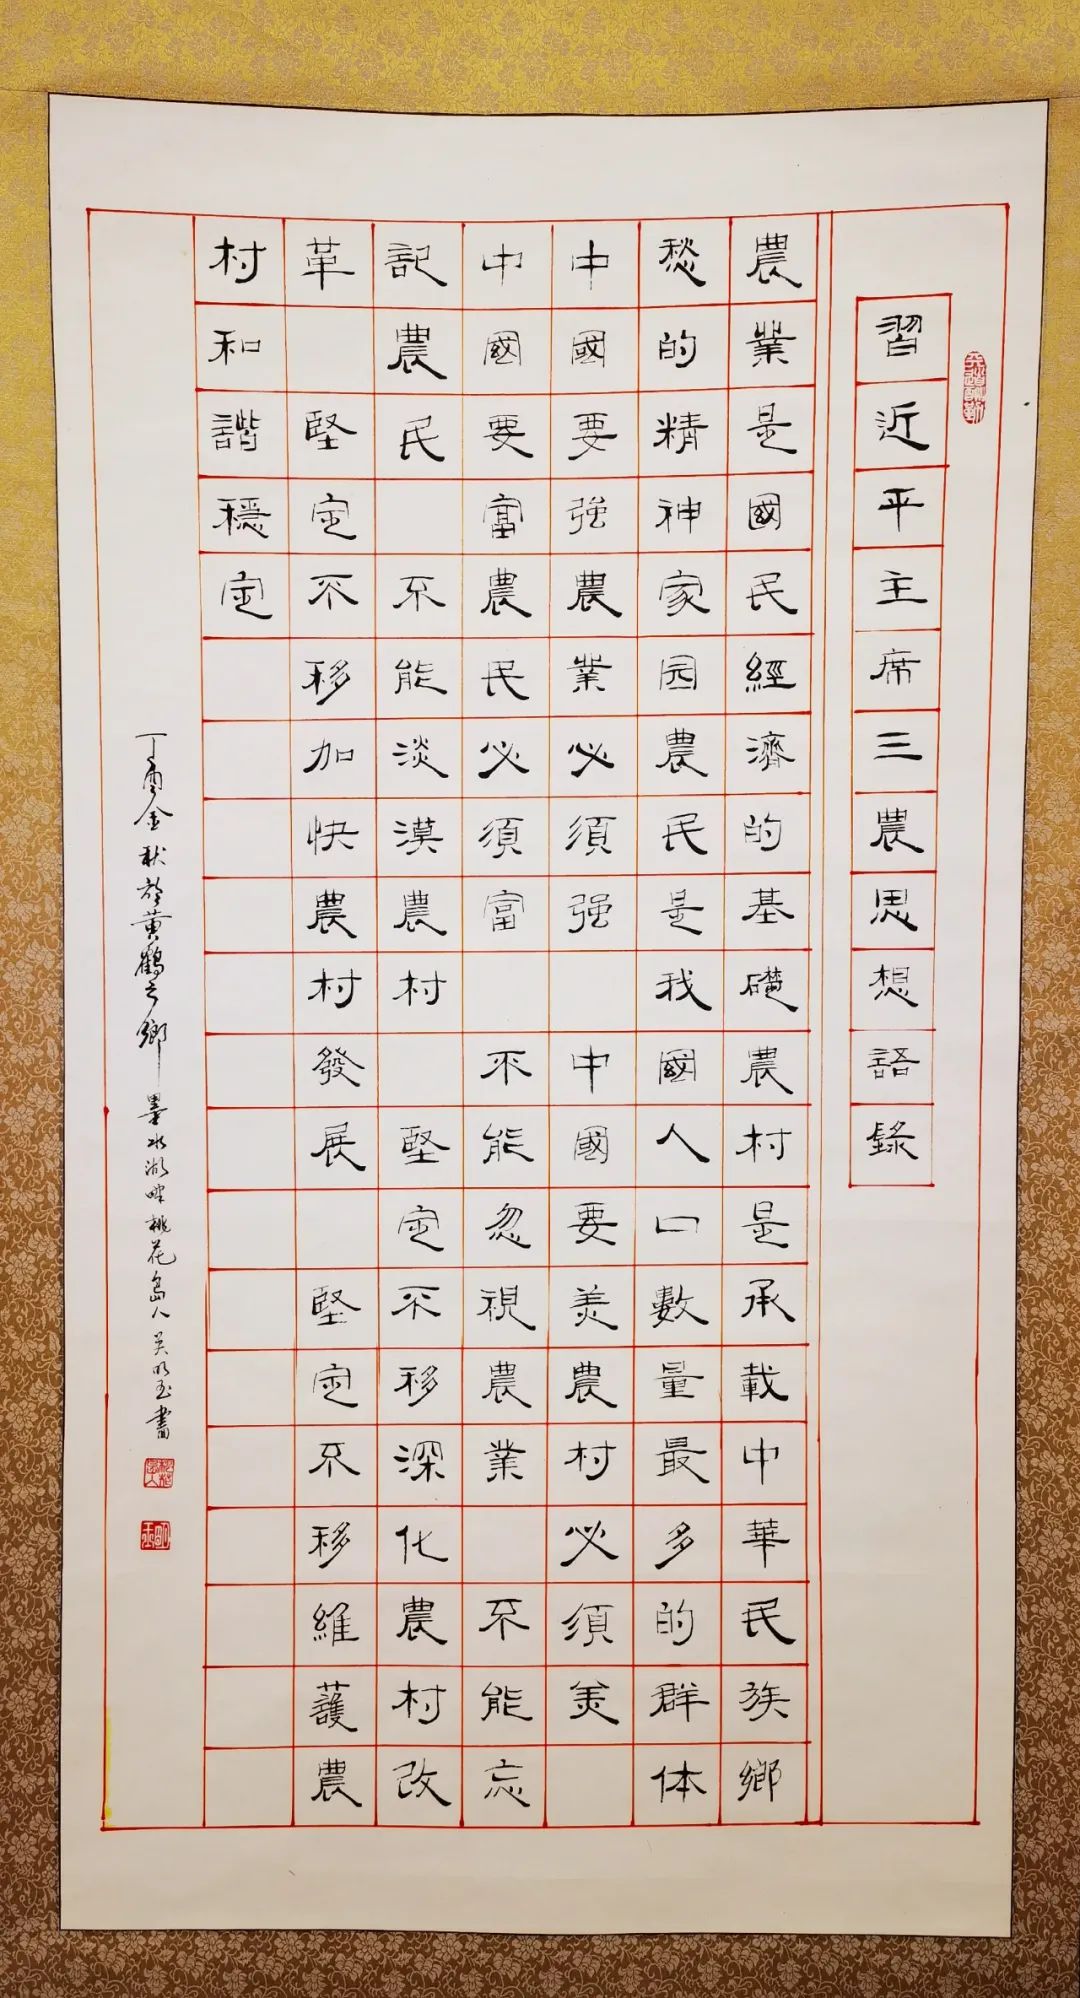 習近平主席三農思想語錄
農業是國民經濟的基礎農村是承載中華民族鄉
愁的精神家园農民是我國人口數量最多的群体
中國要強農業必須强 中國要美農村必須美
中國要富農民必須富 不能忽視農業 不能忘
記農民 不能淡漠農村 堅定不移深化農村改
革 堅定不移加快農村發展 堅定不移維護農
村和諧穩定
丁酉金秋於黃鶴之鄉墨水湖畔桃花島人吴明玉書
天道酬勤